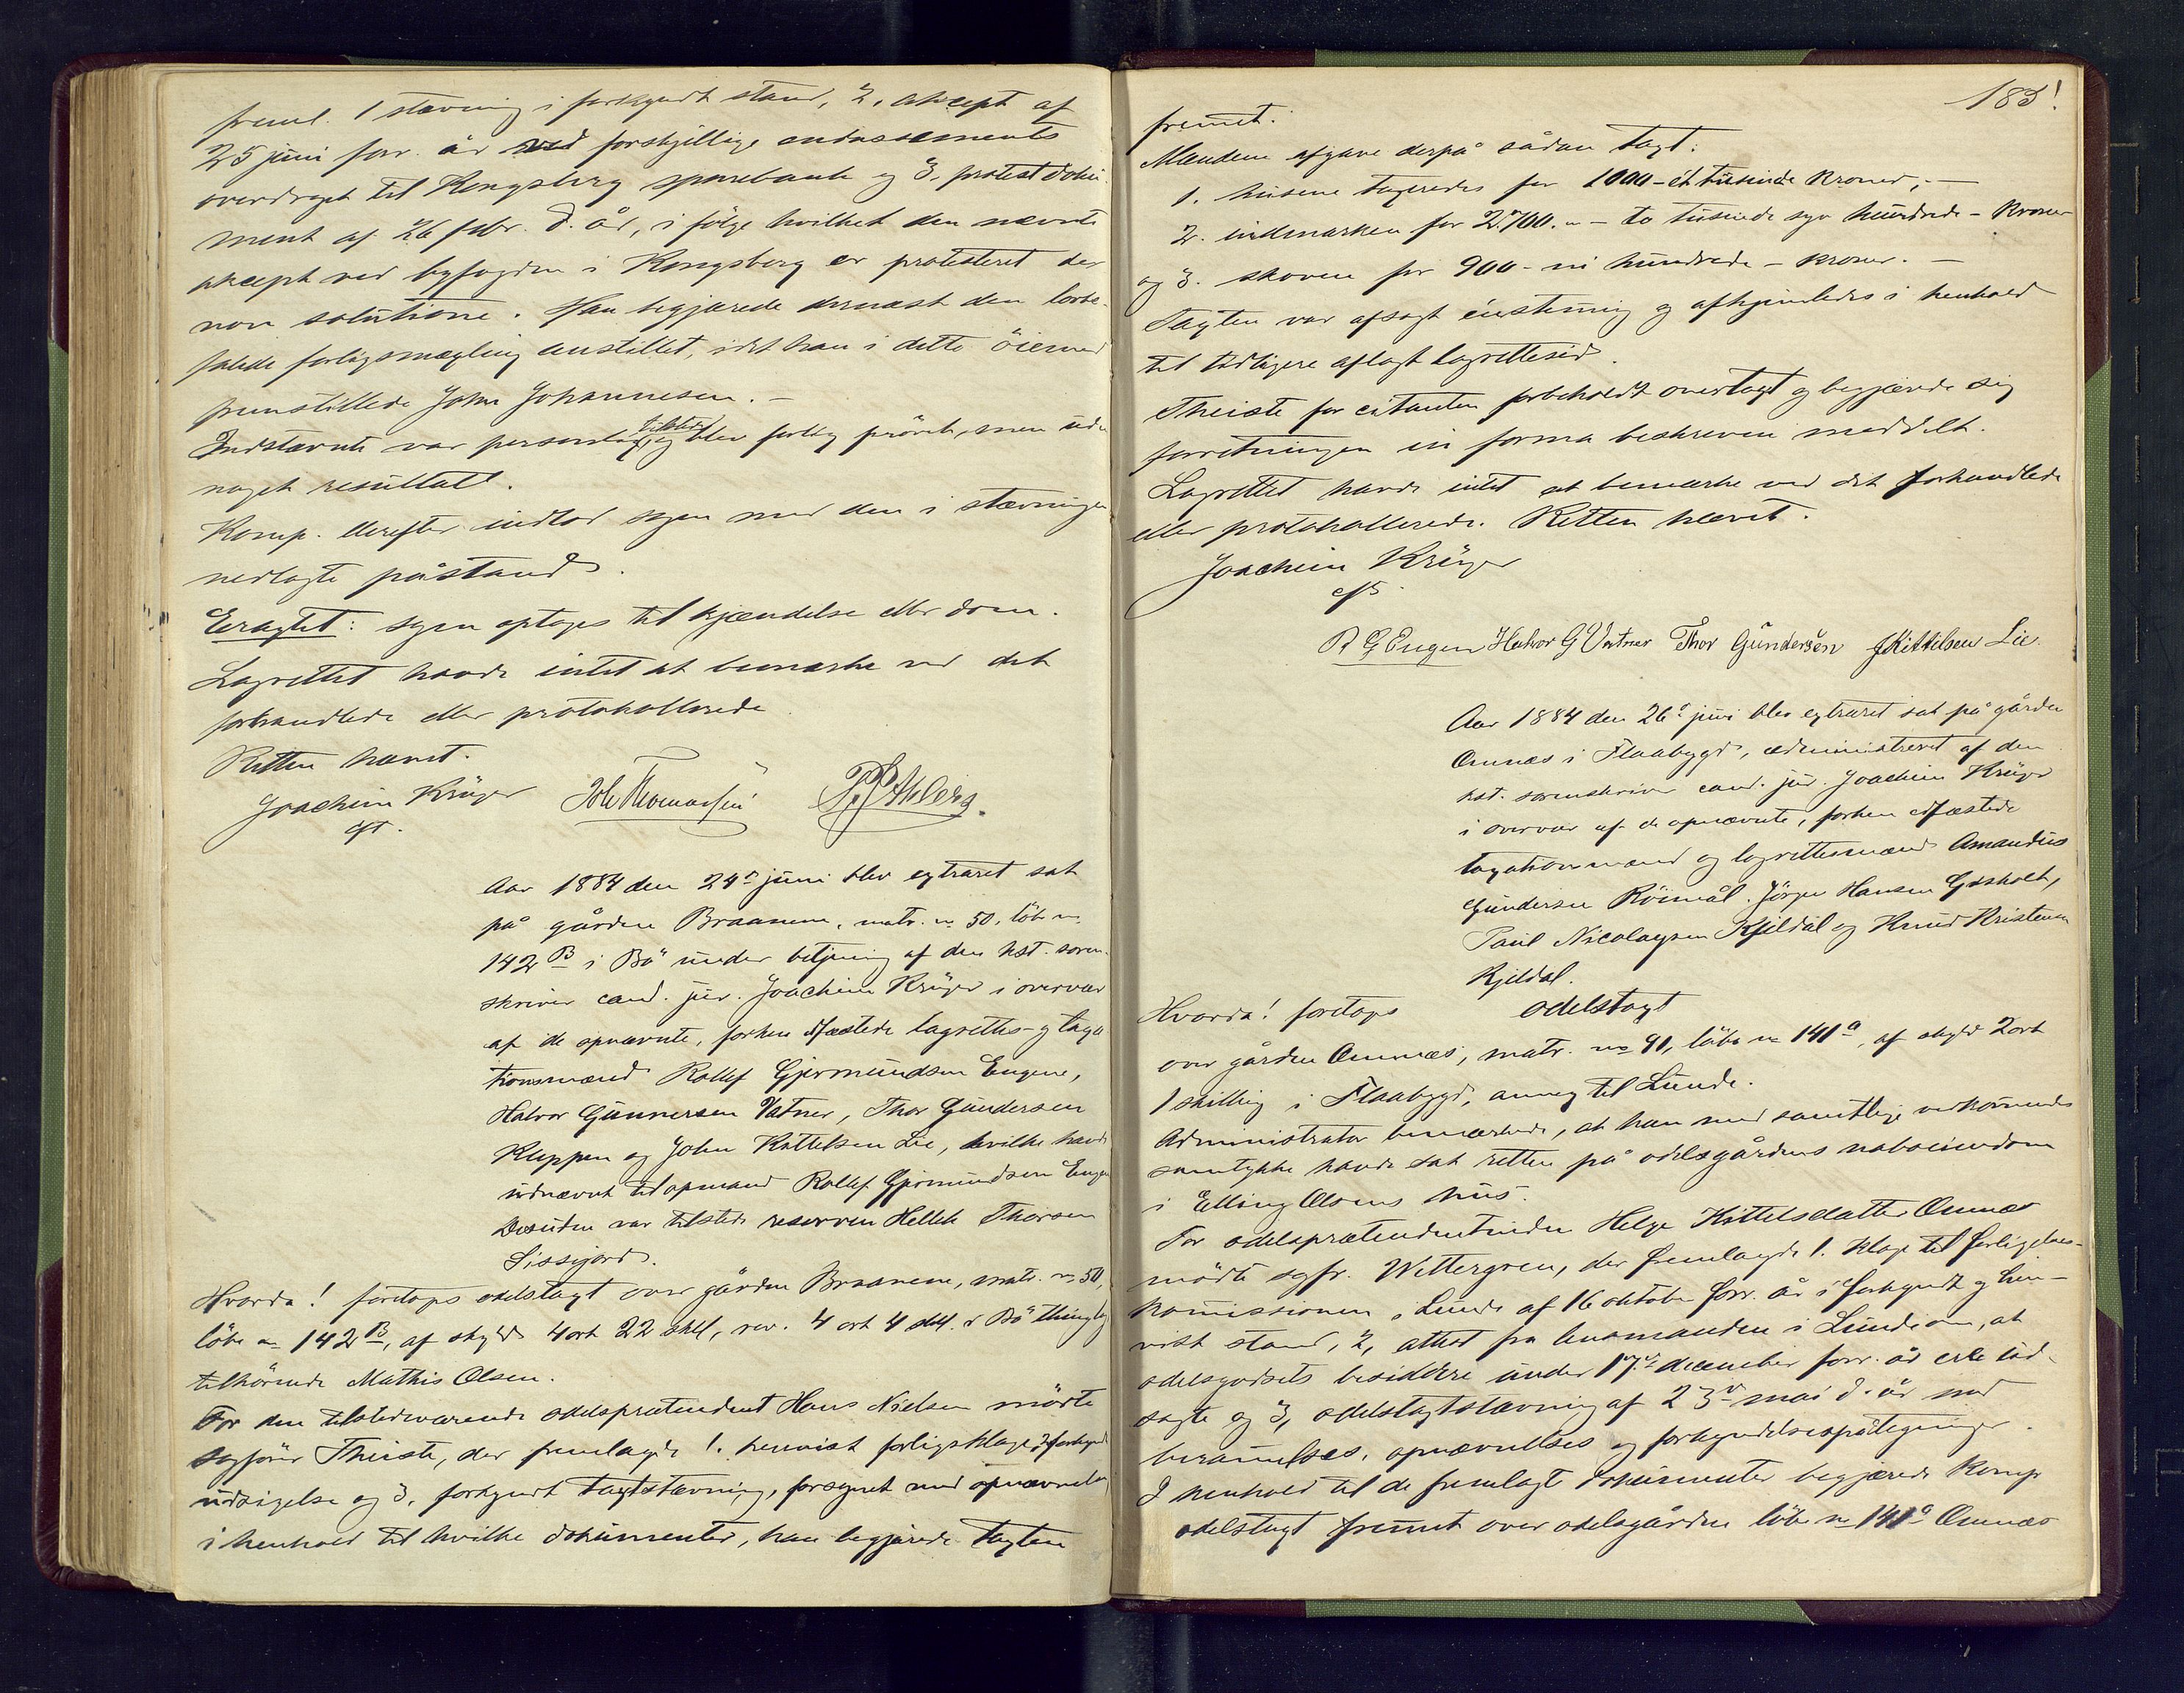 freml. 1 stævning i forkyndt stand, 2, aksept af
25 juni forr. år ved forskjellige endossements
overdraget til Kongsberg sparebank og 3, protestdoku-
ment af 26 febr. d. år, i følge hvilket den nævnte
aksept ved byfogden i Kongsberg er protesteret de
non solutione. Han begjærede dernæst den lovbe-
falede forligsmægling anstillet, idet han i dette öiemed
fremstillede John Johannesen. –
Indstævnte var personlig tilstede, og blev forlig prövet, men uden
noget resultatt.
Komp. derefter indlod sagen med den i stævningen
nedlagte påstand.
Eragtet: sagen optages til kjændelse eller dom.
Lagrettet havde intet at bemærke ved det
forhandlede eller protokollerede.
Retten hævet.
Joachim Krüger
cft.
Joh Thomassen
P. P. Ahlers.
Aar 1884 den 24de juni blev extraret sat
på gården Braanene, matr. no 50, löbe no
142 B i Bö under betjening af den kst. soren-
skriver cand. jur. Joachim Krüger i overvær
af de opnævnte, forhen edfæstede lagrettes- og taxa-
tionsmænd Rollef Gjermundsen Eugene,
Halvor Gunnersen Vatner, Thor Gundersen
Kleppen og John Kittelsen Lie, hvilke havde
udnævnt til opmand Rollef Gjermundsen Eugen
Desuden var tilstede reserven Hellek Thorsen
Sissijord.
Hvorda! foretoges odelstagt over gården Braanene, matr. no 50,
löbe no 142 B, af skyld 4 ort 22 skl, rev. 4 ort 4 skl. i Bö thinglag
tilhörende Mathis Olsen.
For den tilstedeværende odelsprætendent Hans Nielsen mödte
sagförer Theiste, der fremlagde 1. henvist forligsklage, 2 forkyndt
udsigelse og 3, forkyndt taxtstævning, forsynet med opnævnelse
i henhold til hvilke dokumenter, han begjærede taxten
183!
fremet.
Mændene afgave derpå sådan taxt:
1. husene taxeredes for 1000 – ét tusinde kroner; –
2. indmarken for 2700. – to tusinde syv hundrede – kroner
og 3. skoven for 900 – ni hundrede – kroner. –
Taxten var afsagt éenstemig og afhjemledes i henhold
til tidligere aflagt lagrettesed.
Theiste for citanten forbeholdt overtaxt og begjærede sig
forretningen in forma beskreven meddelt.
Lagrettet havde intet at bemærke ved det forhandlede
eller protokollerede. Retten hævet.
Joachim Krüger
cft.
R G Eugen Halvor G Vatner Thor Gundersen JKittilsen Lie.
Aar 1884 den 26de juni blev extraret sat på gården
Omnæs i Flaabygd, administreret af den
kst. sorenskriver cand. jur. Joachim Krüger
i overvær af de opnævnte, forhen edfæstede
taxationsmænd og lagrettesmænd Amandus
Gundersen Röimål, Jörgen Hansen Gisholt,
Paul Nicolaysen Kjeldal og Knud Kristensen
Kjeldal.
Hvorda! foretoges odelstaxt
over gården Omnæs, matr. no 91, löbe no 141 a, af skyld 2 ort
1 skilling i Flaabygd, annex til Lunde.
Administrator bemærkede, at han med samtlige vedkommendes
samtykke havde sat retten på odelsgårdens naboeiendom
i Elling Olsens hus.
For odelsprætendentinden Helge Kittelsdatter Omnæs
mödte sagfr. Wettergren, der fremlagde 1. klage til forligelses-
kommissionen i Lunde af 16 oktober forr. år i forkyndt og hen-
vist stand, 2, attest fra lensmanden i Lunde om, at
odelsgodsets besiddere under 17de december forr. år ere ud-
sagte og 3, odelstaxtstævning af 23de mai d. år med
berammelses, opnævnelses og forkyndelsespåtegninger.
I henhold til de fremlagte dokumenter begjærede komp.
odelstaxt fremmet over odelsgården löbe no 141 a Omnæs